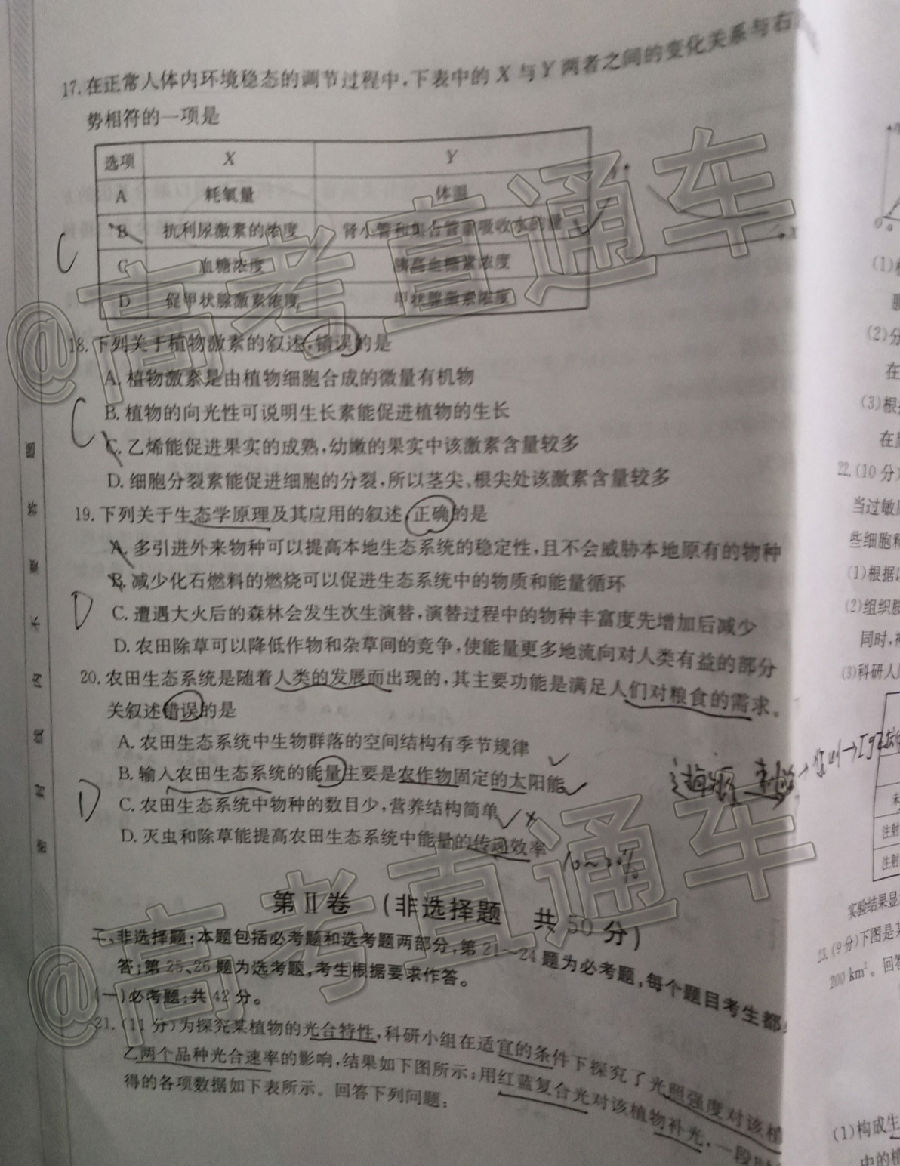 17.在正常人体内环境稳态的调节过程中,下表中的X与Y两者之间的变化关系与右
势相符的一项是
选项 X Y
A 耗氧量 体温
B 抗利尿激素的浓度 肾小管和集合管重吸收水的量
C 血糖浓度 胰高血糖素浓度
D 促甲状腺激素浓度 甲状腺激素浓度
C
18.下列关于植物激素的叙述,错误的是
A.植物激素是由植物细胞合成的微量有机物
B.植物的向光性可说明生长素能促进植物的生长
C
C.乙烯能促进果实的成熟,幼嫩的果实中该激素含量较多
D.细胞分裂素能促进细胞的分裂,所以茎尖、根尖处该激素含量较多
19.下列关于生态学原理及其应用的叙述,正确的是
A.多引进外来物种可以提高本地生态系统的稳定性,且不会威胁本地原有的物种
B.减少化石燃料的燃烧可以促进生态系统中的物质和能量循环
D
C.遭遇大火后的森林会发生次生演替,演替过程中的物种丰富度先增加后减少
D.农田除草可以降低作物和杂草间的竞争,使能量更多地流向对人类有益的部分
20.农田生态系统是随着人类的发展而出现的,其主要功能是满足人们对粮食的需求。
关叙述错误的是
A.农田生态系统中生物群落的空间结构有季节规律
B.输入农田生态系统的能量主要是农作物固定的太阳能
D
C.农田生态系统中物种的数目少,营养结构简单
D.灭虫和除草能提高农田生态系统中能量的传递效率
10~20%
第Ⅱ卷 (非选择题 共50分)
二、非选择题:本题包括必考题和选考题两部分,第21~24题为必考题,每个题目考生都
答;第25、26题为选考题,考生根据要求作答。
(一)必考题:共42分。
21.(11分)为探究某植物的光合特性,科研小组在适宜的条件下探究了光照强度对该植
乙两个品种光合速率的影响,结果如下图所示;用红蓝复合光对该植物补光,一段时
得的各项数据如下表所示。回答下列问题:
@高考直通车
@高考直通车
(1)
(2)分
在
(3)根
在
22.(10分)
当过敏
些细胞
(1)根据
(2)组织
同时,
(3)科研人
未
注射
注射
实验结果显
23.(9分)下图是
200 km²。回答
(1)构成生
中的植